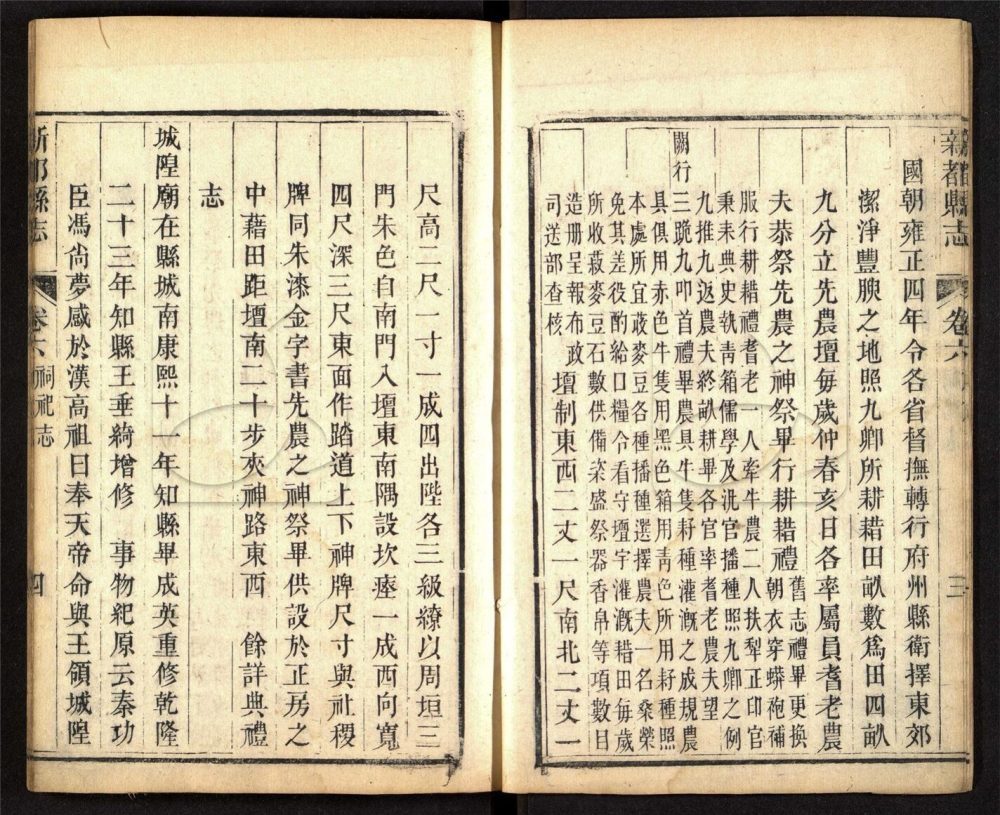 新都縣志 卷六 三
國朝雍正四年令各省督撫轉行府州縣衛擇東郊
潔淨豐腴之地照九卿所耕耤田畝數爲田四畝
九分立先農壇每歲仲春亥日各率屬員耆老農
夫恭祭先農之神祭畢行耕耤禮
舊志禮畢更換
朝衣穿蟒袍補
服行耕耤禮耆老一人牽牛農二人扶犁正印官
秉耒典史執靑箱儒學及汛官播種照九卿之例
九推九返農夫終畝耕畢各官率耆老農夫望
闕行三跪九叩首禮畢農具牛隻耔種灌溉之成規農
具俱用赤色牛隻用黑色箱用靑色所用耔種照
本處所宜菽麥豆各種播種選擇農夫一名榮
免其差役酌給口糧令看守壇宇灌溉耤田每歲
所收菽麥豆石數供備粢盛祭器香帛等項數目
造册呈報布政
司送部查核
壇制東西二丈一尺南北二丈一
尺高二尺一寸一成四出陛各三級繚以周垣三
門朱色自南門入壇東南隅設坎瘞一成西向寬
四尺深三尺東面作踏道上下神牌尺寸與社稷
牌同朱漆金字書先農之神祭畢供設於正房之
中藉田距壇南二十步夾神路東西 餘詳典禮
志
城隍廟在縣城南康熙十一年知縣畢成英重修乾隆
二十三年知縣王垂綺增修 事物紀原云秦功
臣馮尙夢感於漢高祖曰奉天帝命與王領城隍
新都縣志 卷六 祠祀志 四